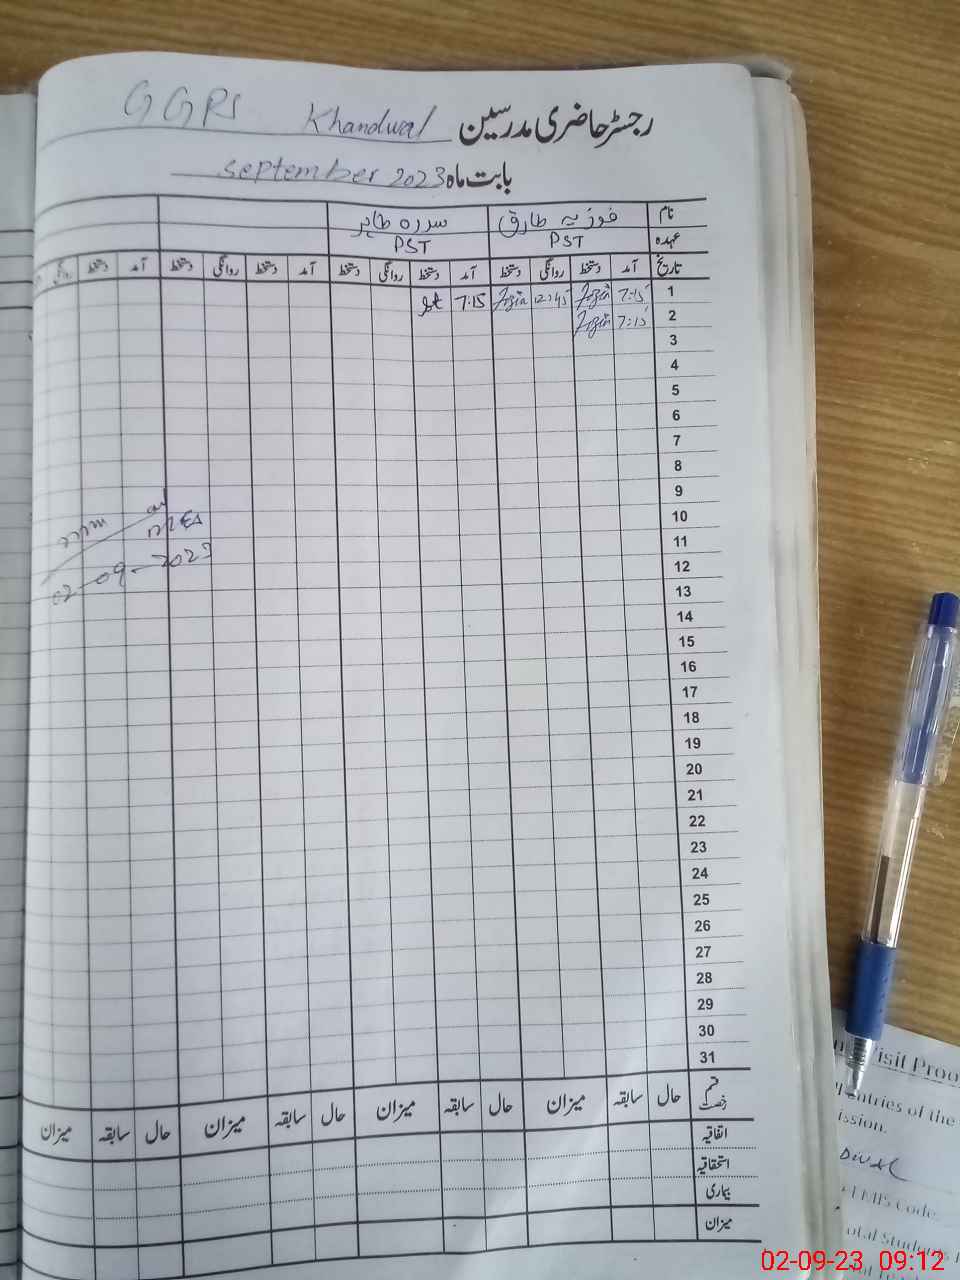 GGPS Khandwal رجسٹر حاضری مدرسین
بابت ماہ september 2023
نام فوزیہ طارق سدرہ طاہر
عہدہ PST PST
تاریخ آمد دستخط روانگی دستخط آمد دستخط روانگی دستخط آمد دستخط روانگی دستخط آمد دستخط روانگی
1 7:15 Fozia 12:45 Fozia 7:15
2 7:15 Fozia
3
4
5
6
7
8
9
10
11
12
13
14
15
16
17
18
19
20
21
22
23
24
25
26
27
28
29
30
31
02-09-2023
قسم رخصت حال سابقہ میزان حال سابقہ میزان حال سابقہ میزان حال سابقہ میزان
اتفاقیہ
استحقاقیہ
بیماری
میزان
Visit Proo
entries of the
ission.
EMIS Code
otal Students
02-09-23 09:12